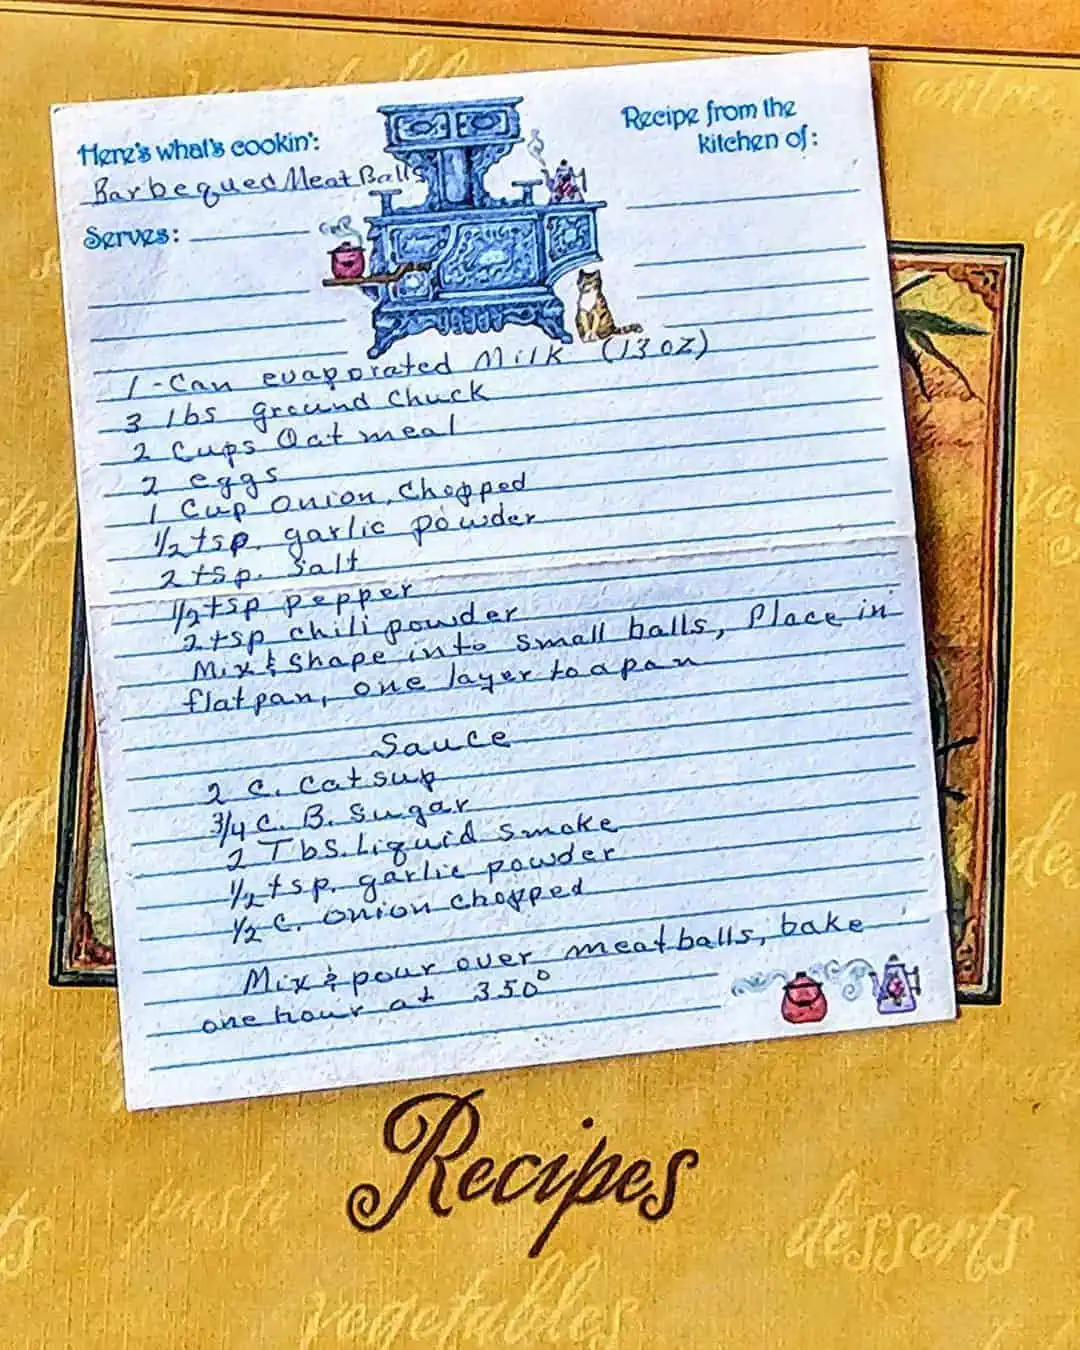 Here's what's cookin':
Recipe from the
kitchen of:
Barbequed Meat Balls
Serves:
1 - Can evaporated Milk (13 oz)
3 lbs ground chuck
2 Cups Oatmeal
2 eggs
1 Cup Onion, Chopped
1/2 tsp. garlic powder
2 tsp. Salt
1/2 tsp pepper
2 tsp chili powder
Mix & Shape into small balls, Place in
flat pan, one layer to a pan
Sauce
2 C. Catsup
3/4 C. B. Sugar
2 Tbs. Liquid Smoke
1/2 tsp. garlic powder
1/2 C. onion chopped
Mix & pour over meatballs, bake
one hour at 350°
Recipes
pasta
desserts
vegetables